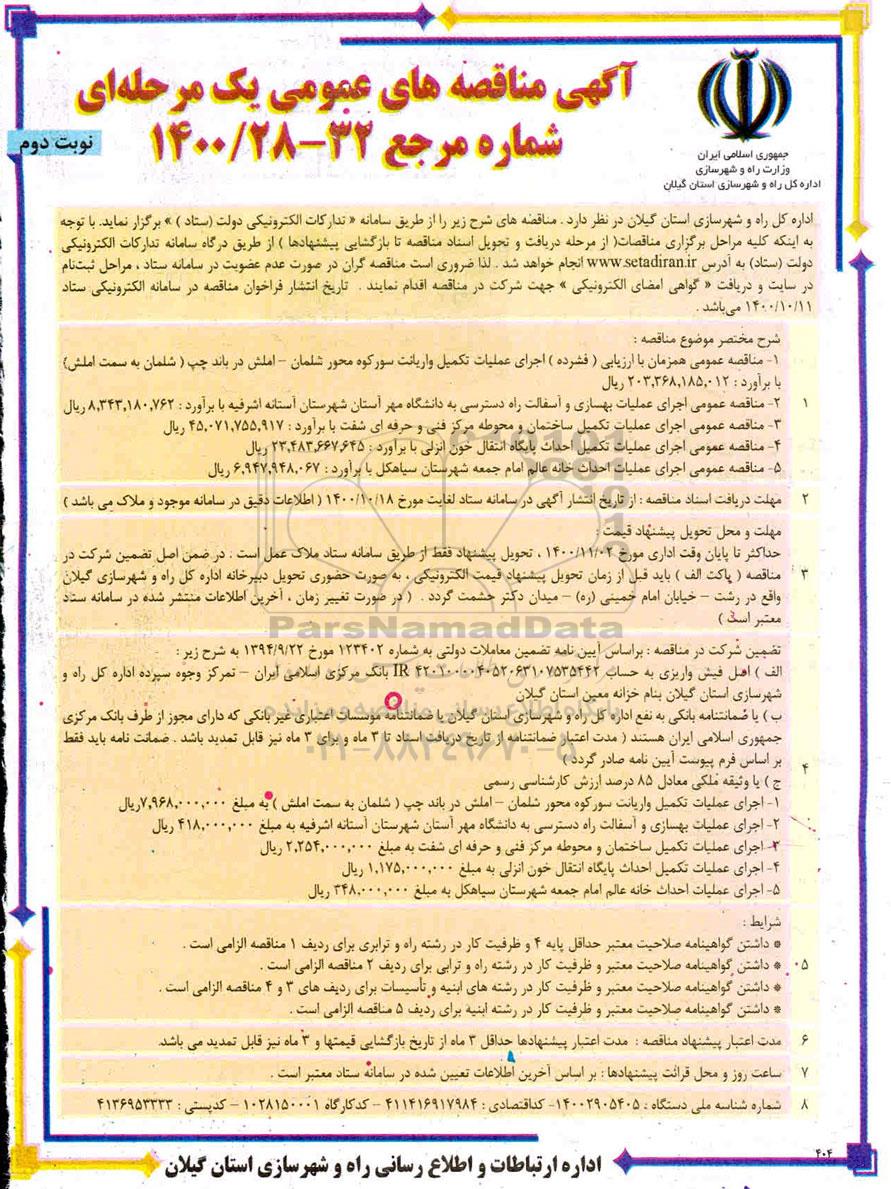 آگهی مناقصه های عمومی یک مرحله‌ای
شماره مرجع ۳۲-۱۴۰۰/۲۸
نوبت دوم
جمهوری اسلامی ایران
وزارت راه و شهرسازی
اداره کل راه و شهرسازی استان گیلان
اداره کل راه و شهرسازی استان گیلان در نظر دارد . مناقصه های شرح زیر را از طریق سامانه « تدارکات الکترونیکی دولت (ستاد ) » برگزار نماید. با توجه
به اینکه کلیه مراحل برگزاری مناقصات( از مرحله دریافت و تحویل اسناد مناقصه تا بازگشایی پیشنهادها ) از طریق درگاه سامانه تدارکات الکترونیکی
دولت (ستاد) به آدرس www.setadiran.ir انجام خواهد شد . لذا ضروری است مناقصه گران در صورت عدم عضویت در سامانه ستاد ، مراحل ثبت‌نام
در سایت و دریافت « گواهی امضای الکترونیکی » جهت شرکت در مناقصه اقدام نمایند . تاریخ انتشار فراخوان مناقصه در سامانه الکترونیکی ستاد
۱۴۰۰/۱۰/۱۱ می‌باشد .
شرح مختصر موضوع مناقصه :
۱- مناقصه عمومی همزمان با ارزیابی ( فشرده ) اجرای عملیات تکمیل واریانت سورکوه محور شلمان – املش در باند چپ ( شلمان به سمت املش)
با برآورد : ۲۰۳,۳۶۸,۱۸۵,۰۱۲ ریال
۱ ۲- مناقصه عمومی اجرای عملیات بهسازی و آسفالت راه دسترسی به دانشگاه مهر آستان شهرستان آستانه اشرفیه با برآورد : ۸,۳۴۳,۱۸۰,۷۶۲ ریال
۳- مناقصه عمومی اجرای عملیات تکمیل ساختمان و محوطه مرکز فنی و حرفه ای شفت با برآورد : ۴۵,۰۷۱,۷۵۵,۹۱۷ ریال
۴- مناقصه عمومی اجرای عملیات تکمیل احداث پایگاه انتقال خون انزلی با برآورد : ۲۳,۴۸۳,۶۶۷,۶۴۵ ریال
۵- مناقصه عمومی اجرای عملیات احداث خانه عالم امام جمعه شهرستان سیاهکل با برآورد : ۶,۹۴۷,۹۴۸,۰۶۷ ریال
۲ مهلت دریافت اسناد مناقصه : از تاریخ انتشار آگهی در سامانه ستاد لغایت مورخ ۱۴۰۰/۱۰/۱۸ ( اطلاعات دقیق در سامانه موجود و ملاک می باشد )
مهلت و محل تحویل پیشنهاد قیمت :
حداکثر تا پایان وقت اداری مورخ ۱۴۰۰/۱۱/۰۲ ، تحویل پیشنهاد فقط از طریق سامانه ستاد ملاک عمل است . در ضمن اصل تضمین شرکت در
۳ مناقصه ( پاکت الف ) باید قبل از زمان تحویل پیشنهاد قیمت الکترونیکی ، به صورت حضوری تحویل دبیرخانه اداره کل راه و شهرسازی گیلان
واقع در رشت – خیابان امام خمینی (ره) – میدان دکتر حشمت گردد . ( در صورت تغییر زمان ، آخرین اطلاعات منتشر شده در سامانه ستاد
معتبر است )
ParsNamadData
تضمین شرکت در مناقصه : براساس آیین نامه تضمین معاملات دولتی به شماره ۱۲۳۴۰۲ مورخ ۱۳۹۴/۹/۲۲ به شرح زیر :
الف ) اصل فیش واریزی به حساب IR ۴۲۰۱۰۰۰۰۴۰۵۲۰۶۳۱۰۷۵۳۵۴۴۲ بانک مرکزی اسلامی ایران – تمرکز وجوه سپرده اداره کل راه و
شهرسازی استان گیلان بنام خزانه معین استان گیلان
پایگاه اطلاع رسانی مناقصه و مزایده
ب ) یا ضمانتنامه بانکی به نفع اداره کل راه و شهرسازی استان گیلان یا ضمانتنامه موسسات اعتباری غیر بانکی که دارای مجوز از طرف بانک مرکزی
جمهوری اسلامی ایران هستند ( مدت اعتبار ضمانتنامه از تاریخ دریافت اسناد تا ۳ ماه و برای ۳ ماه نیز قابل تمدید باشد . ضمانت نامه باید فقط
۰۲۱-۸۸۳۴۹۶۷۰-۵
۴ بر اساس فرم پیوست آیین نامه صادر گردد )
ج ) یا وثیقه ملکی معادل ۸۵ درصد ارزش کارشناسی رسمی
۱- اجرای عملیات تکمیل واریانت سورکوه محور شلمان – املش در باند چپ ( شلمان به سمت املش ) به مبلغ ۷,۹۶۸,۰۰۰,۰۰۰ریال
۲- اجرای عملیات بهسازی و آسفالت راه دسترسی به دانشگاه مهر آستان شهرستان آستانه اشرفیه به مبلغ ۴۱۸,۰۰۰,۰۰۰ ریال
۳- اجرای عملیات تکمیل ساختمان و محوطه مرکز فنی و حرفه ای شفت به مبلغ ۲,۲۵۴,۰۰۰,۰۰۰ ریال
۴- اجرای عملیات تکمیل احداث پایگاه انتقال خون انزلی به مبلغ ۱,۱۷۵,۰۰۰,۰۰۰ ریال
۵- اجرای عملیات احداث خانه عالم امام جمعه شهرستان سیاهکل به مبلغ ۳۴۸,۰۰۰,۰۰۰ ریال
شرایط :
* داشتن گواهینامه صلاحیت معتبر حداقل پایه ۴ و ظرفیت کار در رشته راه و ترابری برای ردیف ۱ مناقصه الزامی است .
۵ * داشتن گواهینامه صلاحیت معتبر و ظرفیت کار در رشته راه و ترابی برای ردیف ۲ مناقصه الزامی است .
* داشتن گواهینامه صلاحیت معتبر و ظرفیت کار در رشته های ابنیه و تأسیسات برای ردیف های ۳ و ۴ مناقصه الزامی است .
* داشتن گواهینامه صلاحیت معتبر و ظرفیت کار در رشته ابنیه برای ردیف ۵ مناقصه الزامی است .
۶ مدت اعتبار پیشنهاد مناقصه : مدت اعتبار پیشنهادها حداقل ۳ ماه از تاریخ بازگشایی قیمتها و ۳ ماه نیز قابل تمدید می باشد.
۷ ساعت روز و محل قرائت پیشنهادها : بر اساس آخرین اطلاعات تعیین شده در سامانه ستاد معتبر است .
۸ شماره شناسه ملی دستگاه : ۱۴۰۰۲۹۰۵۴۰۵- کداقتصادی : ۴۱۱۴۱۶۹۱۷۹۸۴ – کدکارگاه ۱۰۲۸۱۵۰۰۰۱ – کدپستی : ۴۱۳۶۹۵۳۳۳۳
۴۰۴
اداره ارتباطات و اطلاع رسانی راه و شهرسازی استان گیلان